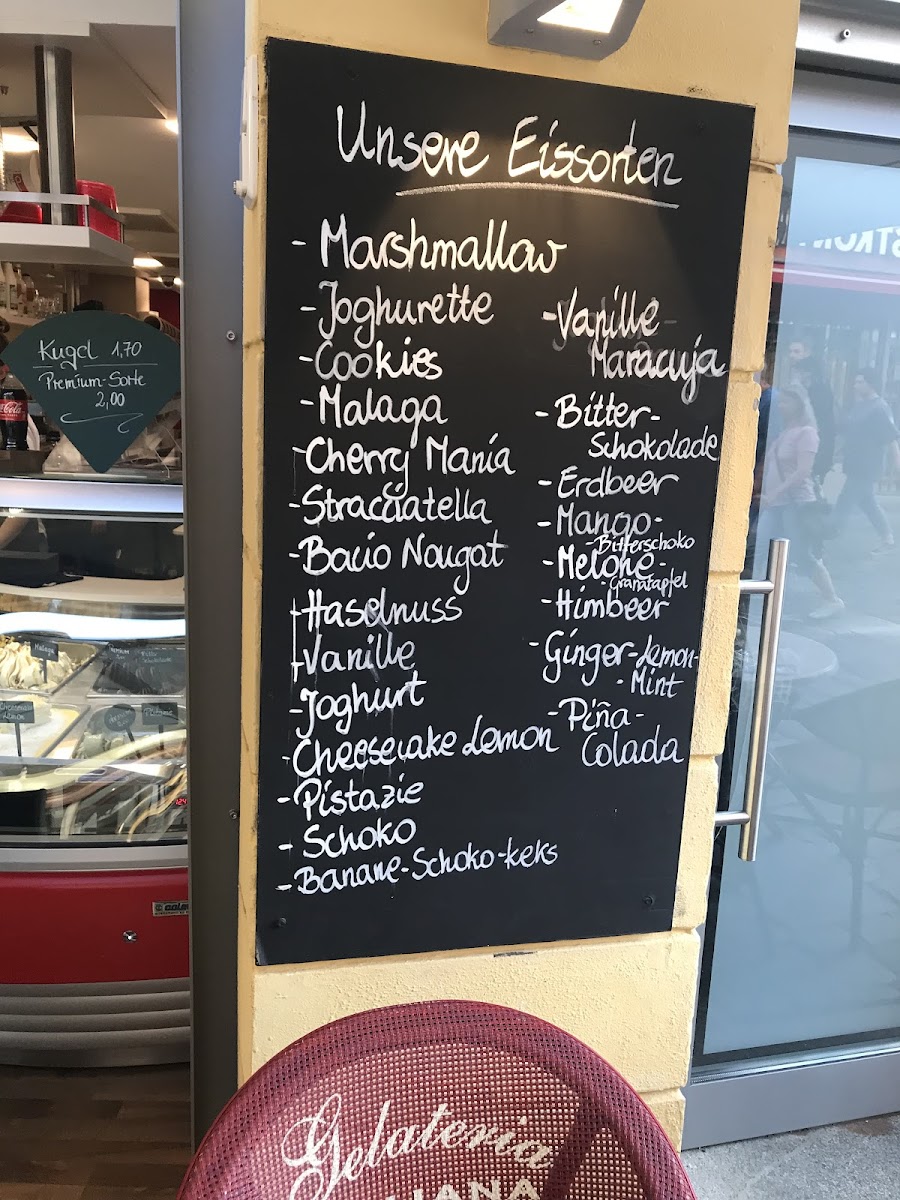 Unsere Eissorten
- Marshmallow
- Joghurette
- Cookies
- Malaga
- Cherry Mania
- Stracciatella
- Bacio Nougat
- Haselnuss
- Vanille
- Joghurt
- Cheesecake Lemon
- Pistazie
- Schoko
- Banane-Schoko-keks
- Vanille
Maracuja
- Bitter-
Schokolade
- Erdbeer
- Mango-
- Bitterschoko
- Melone-
- Granatapfel
- Himbeer
- Ginger-Lemon-
- Mint
- Piña-
Colada
Kugel 1,70
Premium-Sorte
2,00
Coca-Cola
Malaga
Cheesecake
Lemon
Pistazie
Gelateria